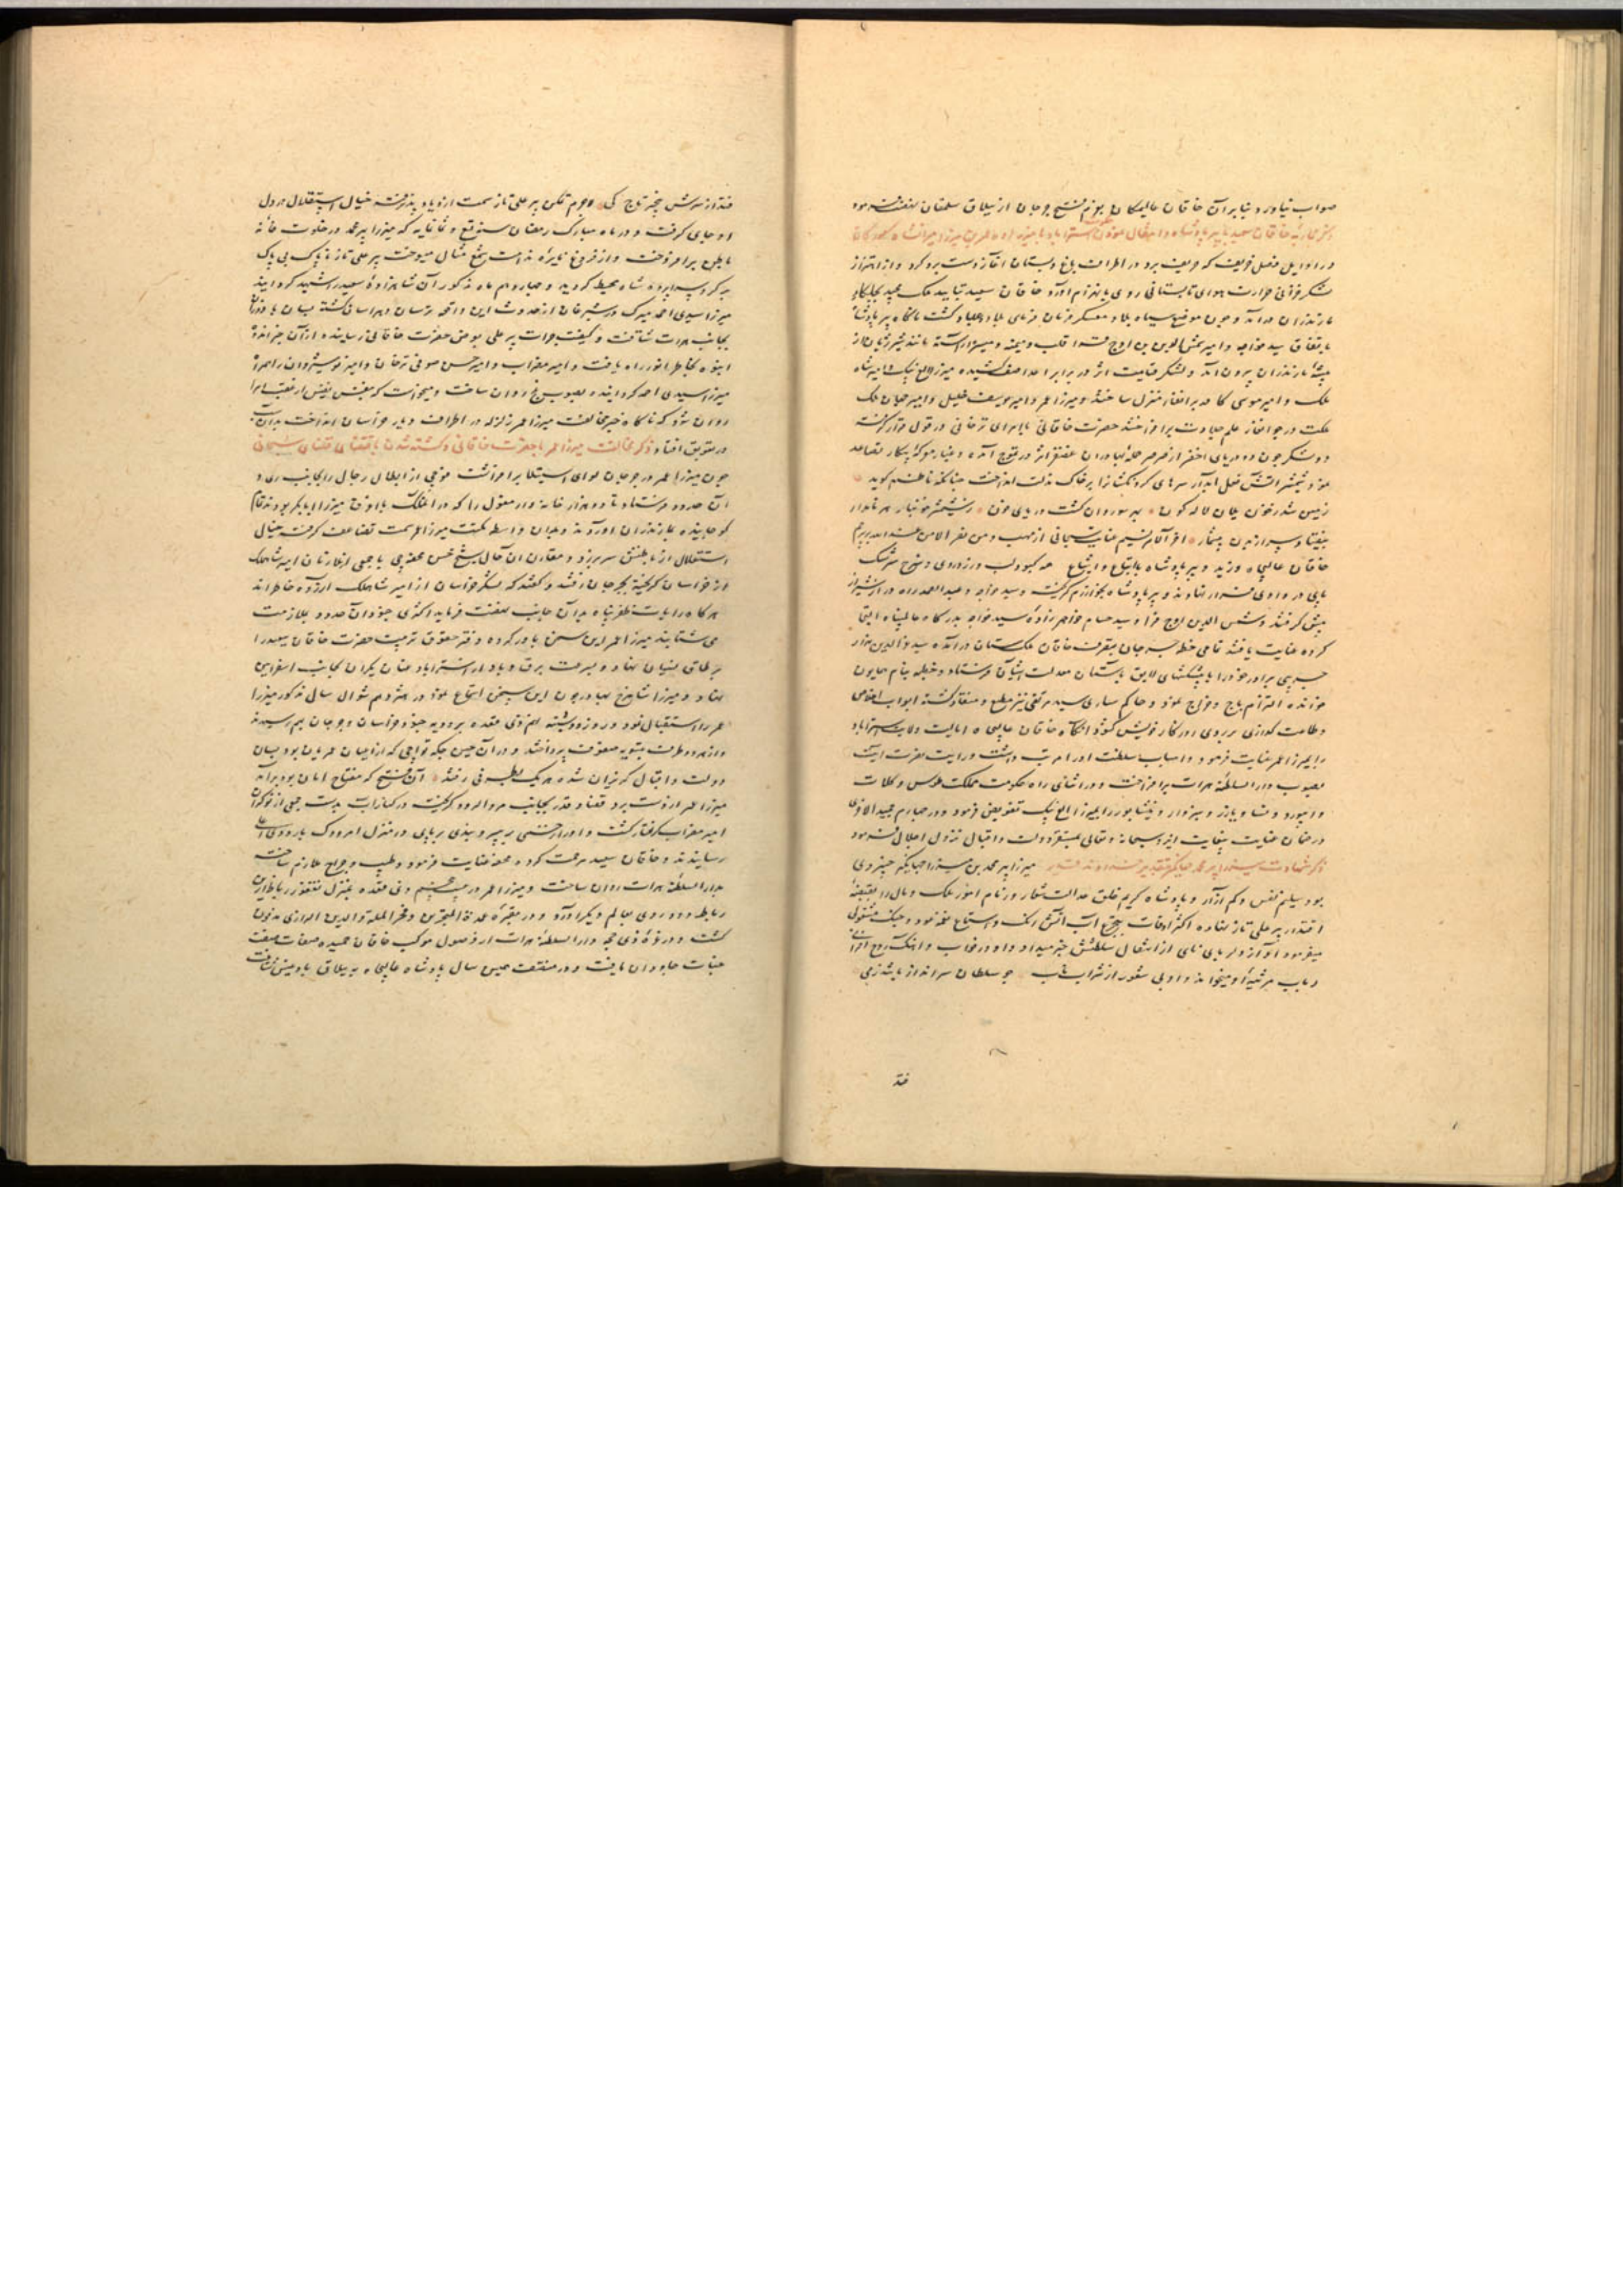 صواب نیاورد بنابرآن خاقان عالیمکان بعزم فتح جرجان از ییلاق سلمقان نهضت فرمود
ذکر محاربه خاقان سعید با پیر پادشاه و انتقال نمودن استراباد با میرزاده عمر بن میرزا میرانشاه
در اوایل فصل خریف که حریف برد در اطراف باغ و بستان آغاز دست برد کرد و از اهتزاز
لشکر خزانی حرارت هوای تابستانی روی بانهزام آورد خاقان سعید بتایید ملک مجید
مازندران درآمد و چون موضع سیاه بلا و معسکر فرمان فرمای بلاد و عباد گشت ناگاه پیر پادشاه
باتفاق سید خواجه و امیر شمس الدین بن اوج قرا قلب و میمنه و میسره آراسته مانند شیر ژیان از
بیشه مازندران بیرون آمد و لشکر قیامت اثر در برابر اعدا صف کشیده میرزا الغ بیک و امیر شاه
ملک و امیر موسی کا در برانغار منزل ساختند و میرزا عمر و امیر یوسف خلیل و امیر جهان ملک
ملکت در جوانغار علم جلادت برافراختند حضرت خاقانی با امرای ترخانی در قول قرار گرفت
دو لشکر چون دو دریای اخضر از صرصر حمله بهادران غضنفر اثر در تموج آمده و غبار معرکه پیکار تصاعد
نمود شمشیر آتش فعل آبدار سرهای گردنکشانرا بر خاک مذلت انداخت چنانکه ناظم گوید
زمین شد ز خون یلان لاله گون بهر سو روان گشت دریای خون ز شمشیر خونبار هر نامدار
بیفتاد سر از بدن بیشمار آخر الامر نسیم عنایت سبحانی از مهب و من نصر الا من عند الله بر پرچم
خاقان عالیجاه وزید و پیر پادشاه با اتباع و اشیاع همه کبود لب و زرد روی و سرخ سرشک
پای در وادی فرار نهادند و پیر پادشاه بخوارزم گریخت و سید خواجه و عبدالصمد راه دار الشیراز
پیش گرفتند و شمس الدین اوج قرا و سید حسام خواهر زاده سید خواجه بدرگاه عالمپناه التجا
کرده عنایت یافتند تمامی خطه جرجان بتصرف خاقان ملک ستان درآمده سید عزالدین هزار
جریبی برادر خود را با پیشکشهای لایق بآستان معدلت آشیان فرستاد و خطبه بنام همایون
خوانده التزام باج و خراج نمود و حاکم ساری سید مرتضی نیز مطیع و منقاد گشته ابواب اخلاص
و طاعت گذاری بر روی روزگار خویش گشود آنگاه خاقان عالیجاه ایالت ولایت استراباد
را بمیرزا عمر عنایت فرمود و اسباب سلطنت او را مرتب داشت و رایت نصرت آیت
بصوب دار السلطنه هرات برافراخت و در اثنای راه حکومت مملکت طوس و کلات
و ابیورد و نسا و یازر و سبزوار و نیشابور را بمیرزا الغ بیک تفویض فرمود و در چهارم جمید الاخری
در ضمان عنایت بیغایت ایزد سبحانه و تعالی بمستقر دولت و اقبال نزول اجلال فرمود
ذکر شهادت میرزا پیر محمد جهانگیر بتقدیر خداوند قدیر میرزا پیر محمد بن میرزا جهانگیر خسروی
بود سلیم نفس و کم آزار و پادشاه کریم خلق عدالت شعار و زمام امور ملک و مال را بقبضه
اقتدار پیر علی تاز نهاده اکثر اوقات بتجرع آب آتش رنگ و استماع نغمه عود و چنگ مشغولی
میفرمود آواز دلربای نای از انتقال سلطنتش خبر میداد و او در خواب و آهنگ روح افزای
رباب مرثیه او میخواند و او بی شعور از شراب ناب چو سلطان سرانداز باشد ز می
فتد
فتد از سرش چتر تاج کی لاجرم تمکن پیر علی تاز سمت ازدیاد پذیرفته خیال استقلال در دل
او جای گرفت و در ماه مبارک رمضان سنه تسع و ثمانمایه که میرزا پیر محمد در خلوت خانه
باطن برافروخت و از فروغ نایره ندامت شمع مثال میسوخت پیر علی تاز ناپاک بی باک
بر گرد سراپرده شاه محیط گردید و چهاردهم ماه مذکور آن شاهزاده سعید را شهید گردانید
میرزا سیدی احمد میرک در شبرغان از حدوث این واقعه ترسان و هراسان گشته بسان باد وزان
بجانب هرات شتافت و کیفیت جرات پیر علی بعرض حضرت خاقانی رسانیده از آن خبر اندوه
انبوه بخاطر انور راه یافت و امیر مضراب و امیر حسن صوفی ترخان و امیر نوشیروان را همراه
میرزا سیدی احمد گردانیده بصوب بلخ روان ساخت و میخواست که بنفس نفیس از عقب امرا
روان شود که ناگاه خبر مخالفت میرزا عمر زلزله در اطراف دیار خراسان انداخت بدان سبب
در تعویق افتاد ذکر مخالفت میرزا عمر با حضرت خاقانی و کشته شدن باقتضای قضای سبحانی
چون میرزا عمر در جرجان لوای استیلا برافراشت فوجی از ابطال رجال را بجانب ری و
آن حدود فرستاد تا دو هزار خانه وار مغول را که در آن ملک با اروق میرزا ابابکر بودند تمام
کوچانیده بمازندران آوردند و بدان واسطه مکنت میرزا عمر سمت تضاعف گرفت خیال
استقلال از باطنش سر برزد و مقارن آن حال شیخ حسن محضرجی با جمعی از ملازمان امیر شاهملک
از خراسان گریخته بجرجان رفتند و گفتند که لشکر خراسان از امیر شاه ملک آزرده خاطراند
هرگاه رایات ظفر پناه بدان جانب نهضت فرماید اکثری جنود آن حدود بملازمت
می شتابند میرزا عمر این سخن باور کرده دفتر حقوق تربیت حضرت خاقان سعید را
بر طاق نسیان نهاد و بسرعت برق و باد از استراباد عنان یکران بجانب اسفراین
نهاد و میرزا شاهرخ بهادر چون این سخن استماع نمود در هژدهم شوال سال مذکور میرزا
عمر را استقبال نمود و روز دوشنبه نهم ذی قعده بردویه جنود خراسان و جرجان بهم رسیدند
و از هر دو طرف بتسویه صفوف پرداختند و در آن حین جکه تواچی که از اعیان عمریان بود بسان
دولت و اقبال گریزان شده هر یک بطرفی رفتند آن فتح که مفتاح امان بود برآمد
میرزا عمر از دست برد قضا و قدر بجانب مرو الرود گریخت در کنار آب بدست جمعی از نوکران
امیر مضراب گرفتار گشت و او را زخمی بر سر و بندی بر پای در منزل امرودک باردوی اعلی
رسانیدند و خاقان سعید مرحمت کرده محفه عنایت فرمود و طبیب و جراح ملازم ساخته
بدار السلطنه هرات روان ساخت و میرزا عمر در بیست و پنجم ذی قعده بمنزل نقوز رباط ازین
رباط دو در روی بعالم دیگر آورد و در مقبره عمده المتبحرین و فخر المله و الدین الرازی مدفون
گشت و در غره ذی حجه دار السلطنه هرات از وصول موکب خاقان حمیده صفات صفت
جنات جاودان یافت و در منتصف همین سال پادشاه عالیجاه به ییلاق بادغیس شتافت